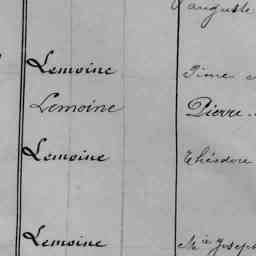 auguste
Lemoine
Lemoine Pierre
Lemoine Théodore
Lemoine M<sup>ie</sup> Joseph